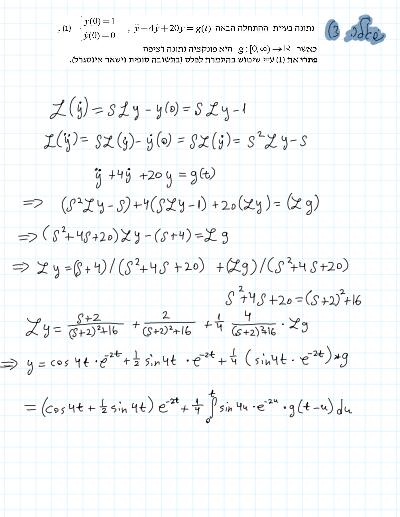 שאלה 3)
נתונה בעיית ההתחלה הבאה ÿ − 4ẏ + 20y = g(t) , { y(0) = 1 , ẏ(0) = 0 , (1)
כאשר g : [0, ∞) → ℝ היא פונקציה נתונה רציפה.
פתרי את (1) ע״י שימוש בהתמרת לפלס (בתשובה סופית נישאר אינטגרל).
ℒ(ẏ) = sℒy − y(0) = sℒy − 1
ℒ(ÿ) = sℒ(ẏ) − ẏ(0) = sℒ(ẏ) = s²ℒy − s
ÿ + 4ẏ + 20y = g(t)
⇒ (s²ℒy − s) + 4(sℒy − 1) + 20(ℒy) = (ℒg)
⇒ (s² + 4s + 20)ℒy − (s + 4) = ℒg
⇒ ℒy = (s + 4)/(s² + 4s + 20) + (ℒg)/(s² + 4s + 20)
s² + 4s + 20 = (s + 2)² + 16
ℒy = (s+2)/((s+2)² + 16) + 2/((s+2)² + 16) + 1/4 · 4/((s+2)² + 16) · ℒg
⇒ y = cos 4t · e^(−2t) + 1/2 sin 4t · e^(−2t) + 1/4 (sin 4t · e^(−2t)) * g
= (cos 4t + 1/2 sin 4t) e^(−2t) + 1/4 ∫₀ᵗ sin 4u · e^(−2u) · g(t − u) du